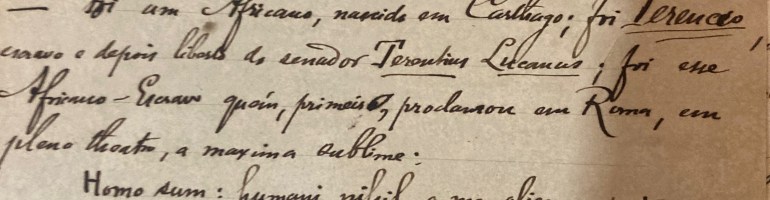 — Foi um Africano, nascido em Carthago; foi Terencio,
escravo e depois liberto do senador Terentius Lucanus; foi esse
Africano-Escravo quem, primeiro, proclamou em Roma, em
pleno theatro, a maxima sublime:
Homo sum: humani nihil a me alien